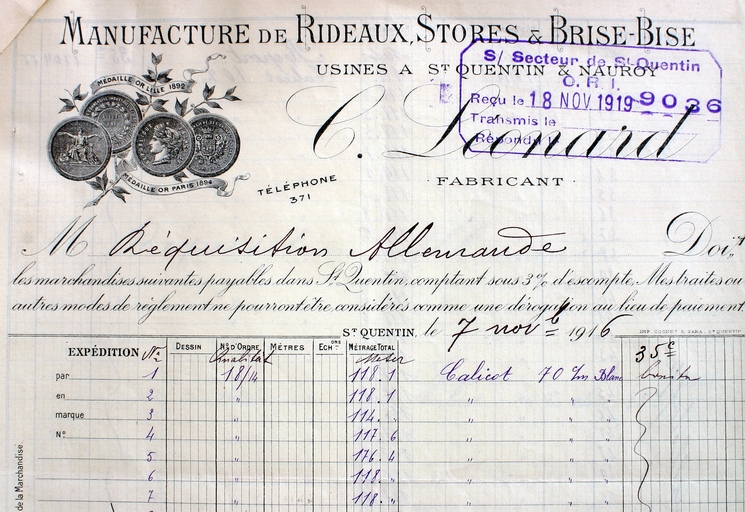 MANUFACTURE DE RIDEAUX, STORES & BRISE-BISE
USINES A ST QUENTIN & NAUROY
S/ Secteur de St-Quentin
O. R. I.
Reçu le 18 NOV 1919 9036
Transmis le
Répondu le
MEDAILLE OR LILLE 1892
MÉDAILLE OR PARIS 1894
C. Léonard
TÉLÉPHONE
371
FABRICANT
M Réquisition Allemande Doit
les marchandises suivantes payables dans St Quentin, comptant sous 3% d'escompte, Mes traites ou
autres modes de règlement ne pourront être considérés comme une dérogation au lieu de paiement.
ST QUENTIN, le 7 novb 1916
IMP. COGNET & CARA, ST QUENTIN
EXPÉDITION No DESSIN Nos D'ORDRE MÈTRES ECHons MÉTRAGE TOTAL 35c
Qualität Meter
par 1 18/14 118.1 Calicot 70 c/m Blanc
en 2 " 118.1 " " "
marque 3 " 114. " " " "
No. 4 " 117.6 " " "
5 " 176.4 " " "
6 " 118. " " " "
7 " 118. " " " "
de la Marchandise